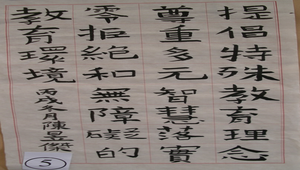 提倡特殊教育理念
尊重多元智慧落實
零拒絕和無障礙的
教育環境
丙戌冬月陳晏傑
5